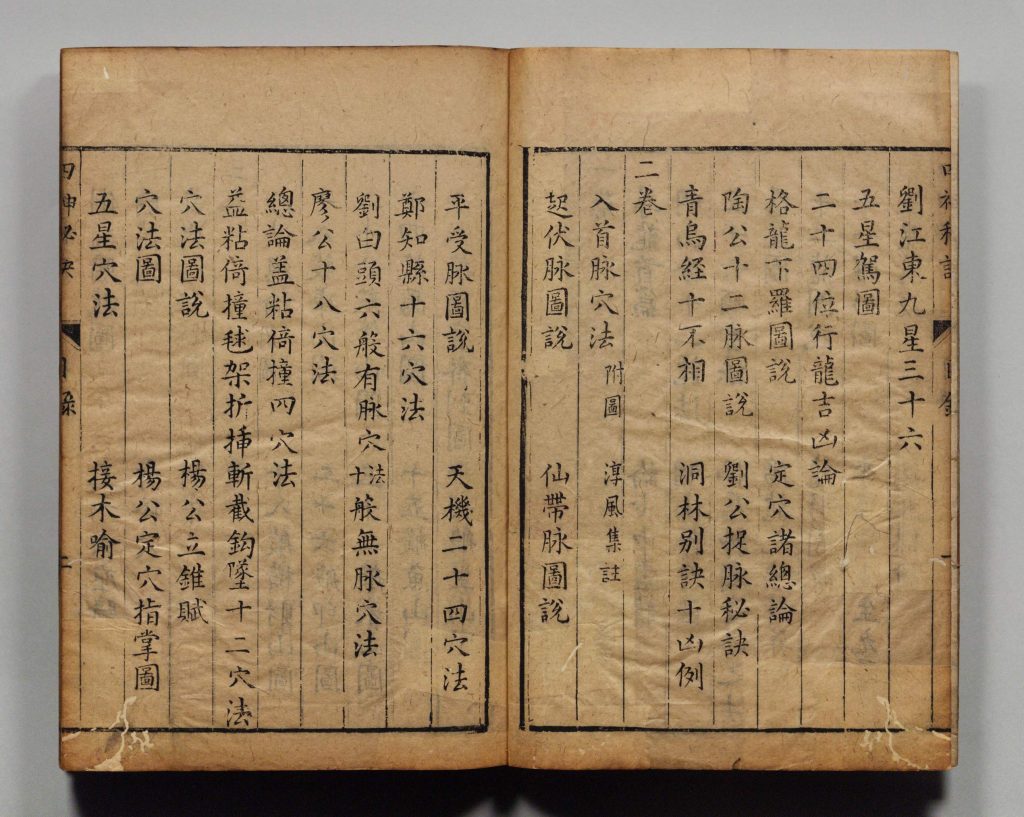 劉江東九星三十六
五星駕圖
二十四位行龍吉凶論
格龍下羅圖說 定穴諸總論
陶公十二脉圖說 劉公捉脉秘訣
青烏經十不相 洞林别訣十凶例
二卷
入首脉穴法 附圖 淳風集註
起伏脉圖說 仙帶脉圖說
平受脉圖說 天機二十四穴法
鄭知縣十六穴法
劉白頭六般有脉穴法十般無脉穴法
廖公十八穴法
總論盖粘倚撞四穴法
益粘倚撞毬架折揷斬截鈎墜十二穴法
穴法圖說 楊公立錐賦
穴法圖 楊公定穴指掌圖
五星穴法 接木喻
目錄